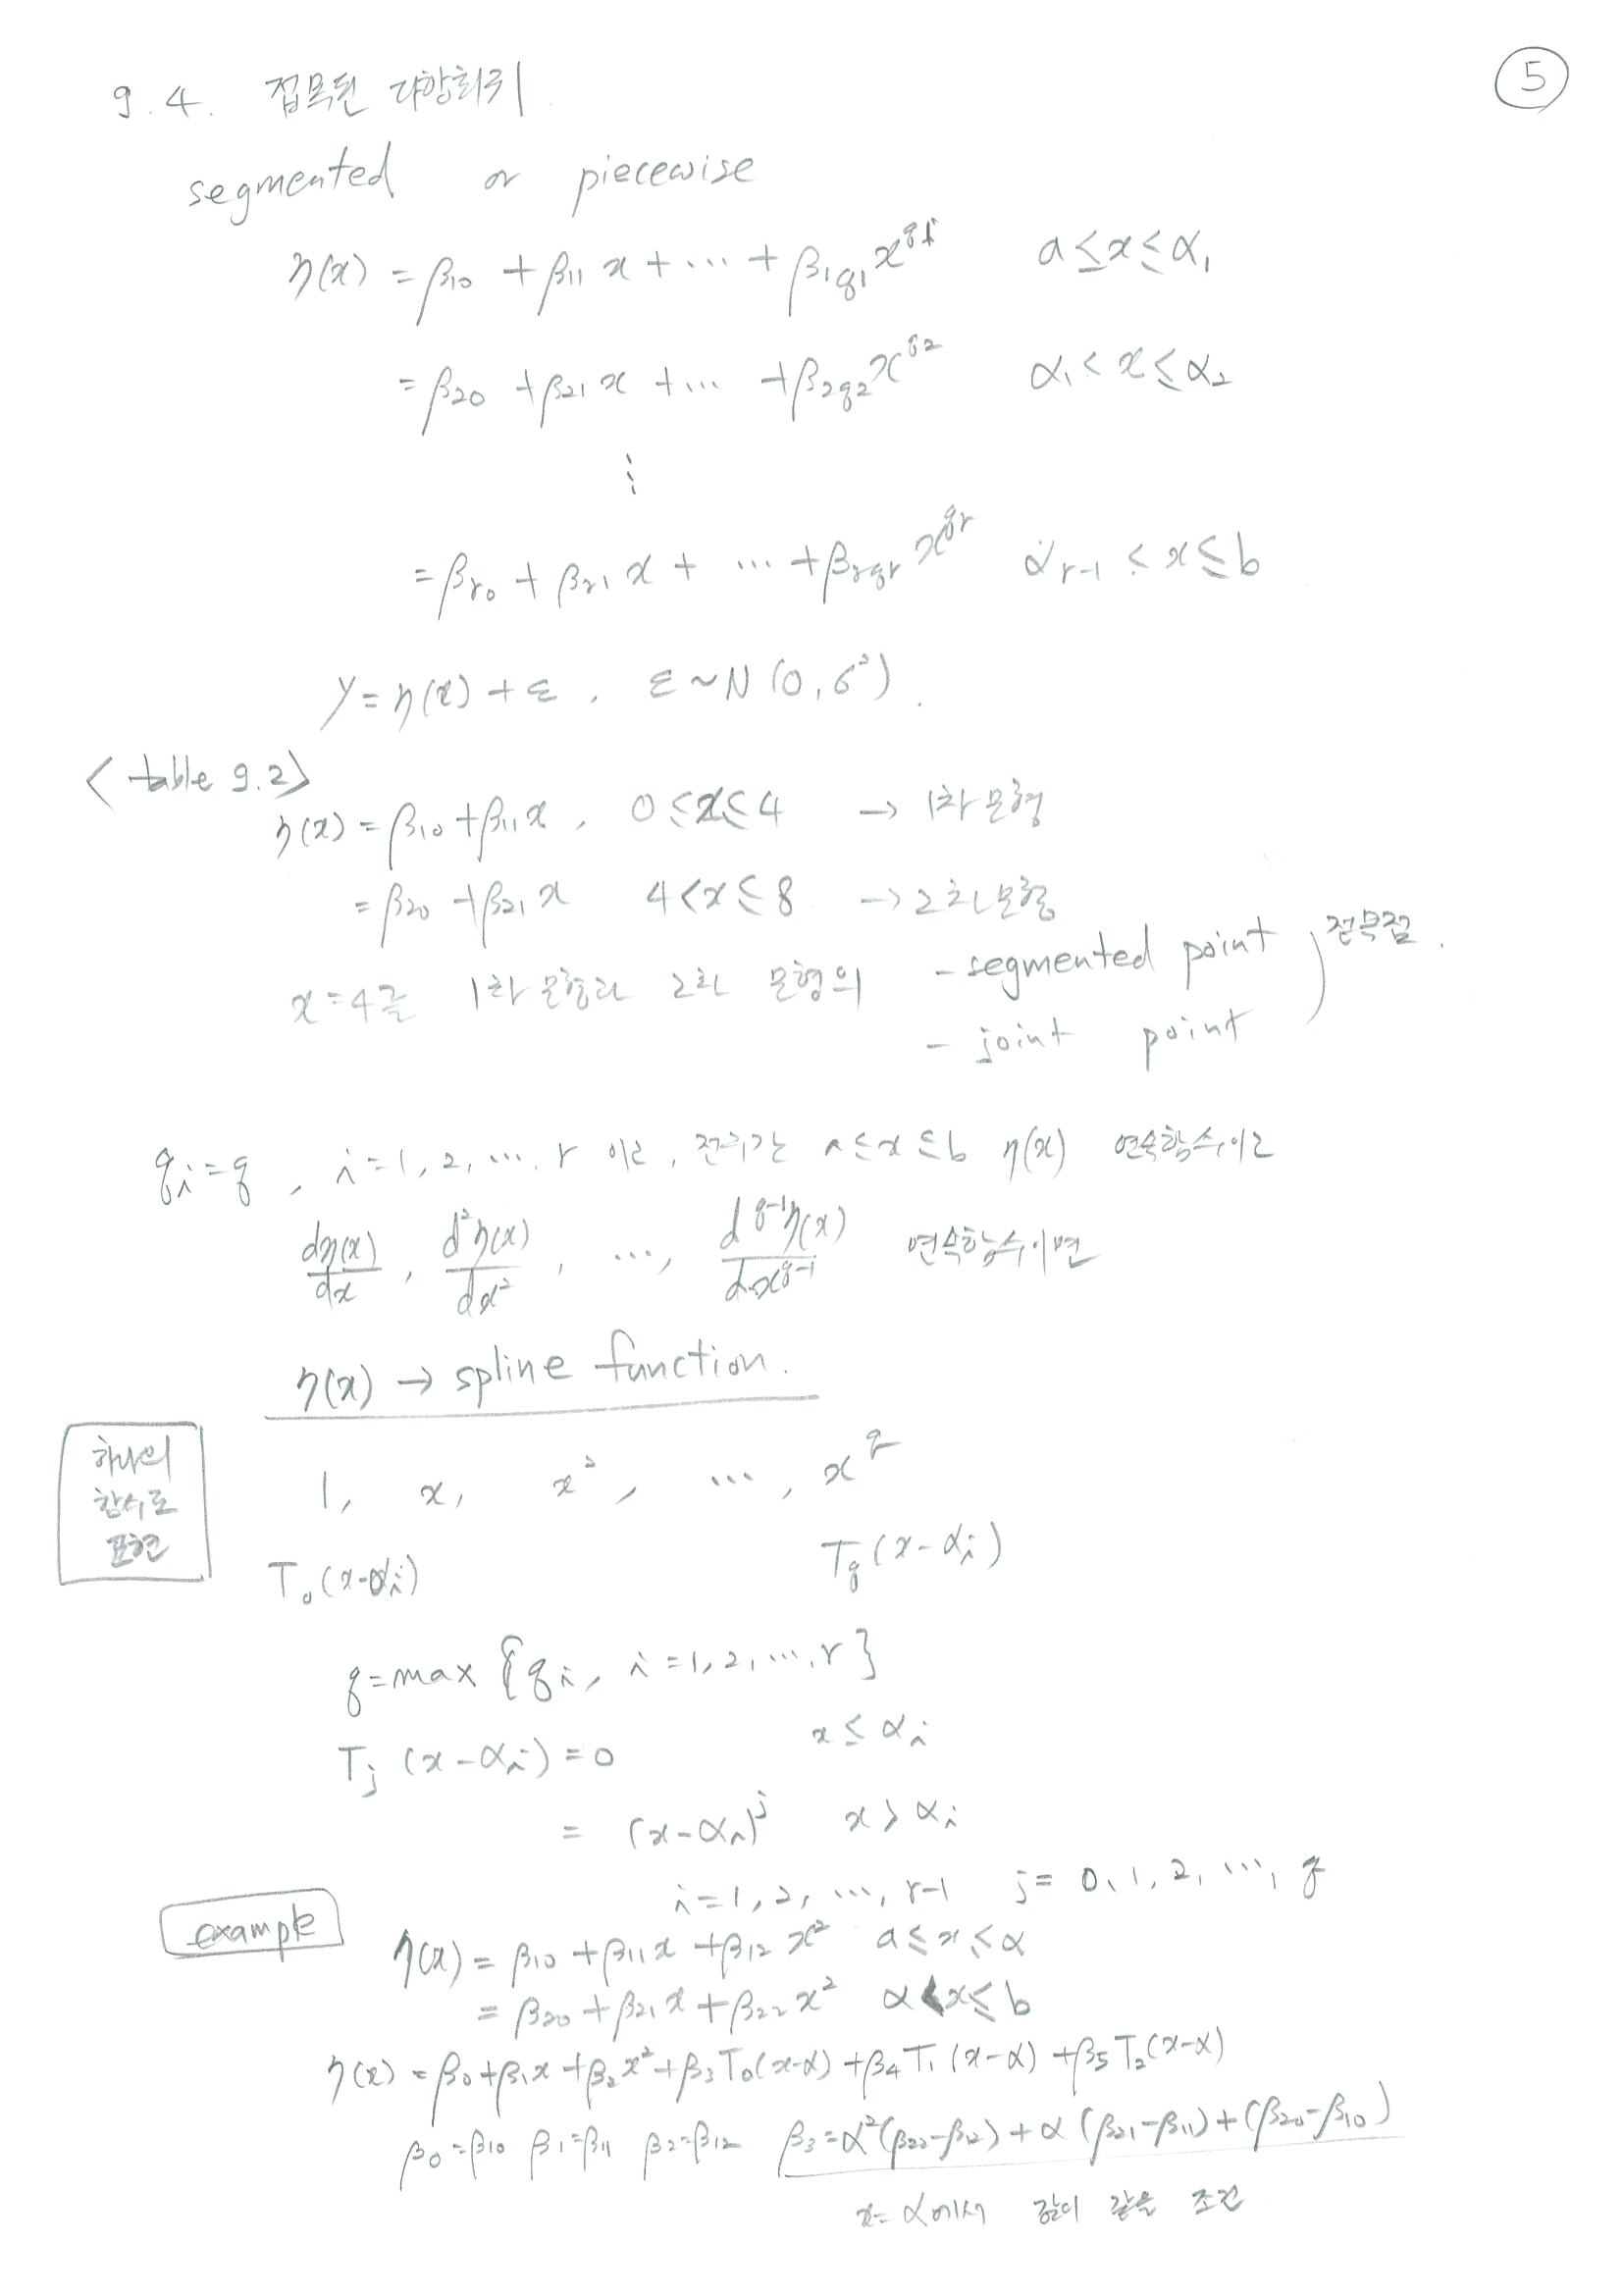 ⑤
9.4. 접목된 다항회귀
segmented or piecewise
η(x) = β10 + β11 x + ... + β1q1 x^q1 a ≤ x ≤ α1
= β20 + β21 x + ... + β2q2 x^q2 α1 < x ≤ α2
⋮
= βr0 + βr1 x + ... + βrqr x^qr αr-1 < x ≤ b
y = η(x) + ε, ε ~ N(0, σ²).
< table 9.2>
η(x) = β10 + β11 x, 0 ≤ x ≤ 4 → 1차 모형
= β20 + β21 x 4 < x ≤ 8 → 2차 모형
x = 4를 1차 모형과 2차 모형의 - segmented point ) 접목점.
- joint point
qi = q, i = 1, 2, ..., r 이고, 전구간 a ≤ x ≤ b η(x) 연속함수이고
dη(x)/dx, d²η(x)/dx², ..., d^q-1 η(x)/dx^q-1 연속함수이면
η(x) → spline function.
하나의
함수로
표현
1, x, x², ..., x^q
T0(x-αi) Tq(x-αi)
q = max {qi, i = 1, 2, ..., r}
Tj (x-αi) = 0 x ≤ αi
= (x-αi)^j x > αi
i = 1, 2, ..., r-1 j = 0, 1, 2, ..., q
example
η(x) = β10 + β11 x + β12 x² a ≤ x ≤ α
= β20 + β21 x + β22 x² α < x ≤ b
η(x) = β0 + β1 x + β2 x² + β3 T0(x-α) + β4 T1(x-α) + β5 T2(x-α)
β0 = β10 β1 = β11 β2 = β12 β3 = α²(β22-β12) + α(β21-β11) + (β20-β10)
x = α에서 값이 같을 조건